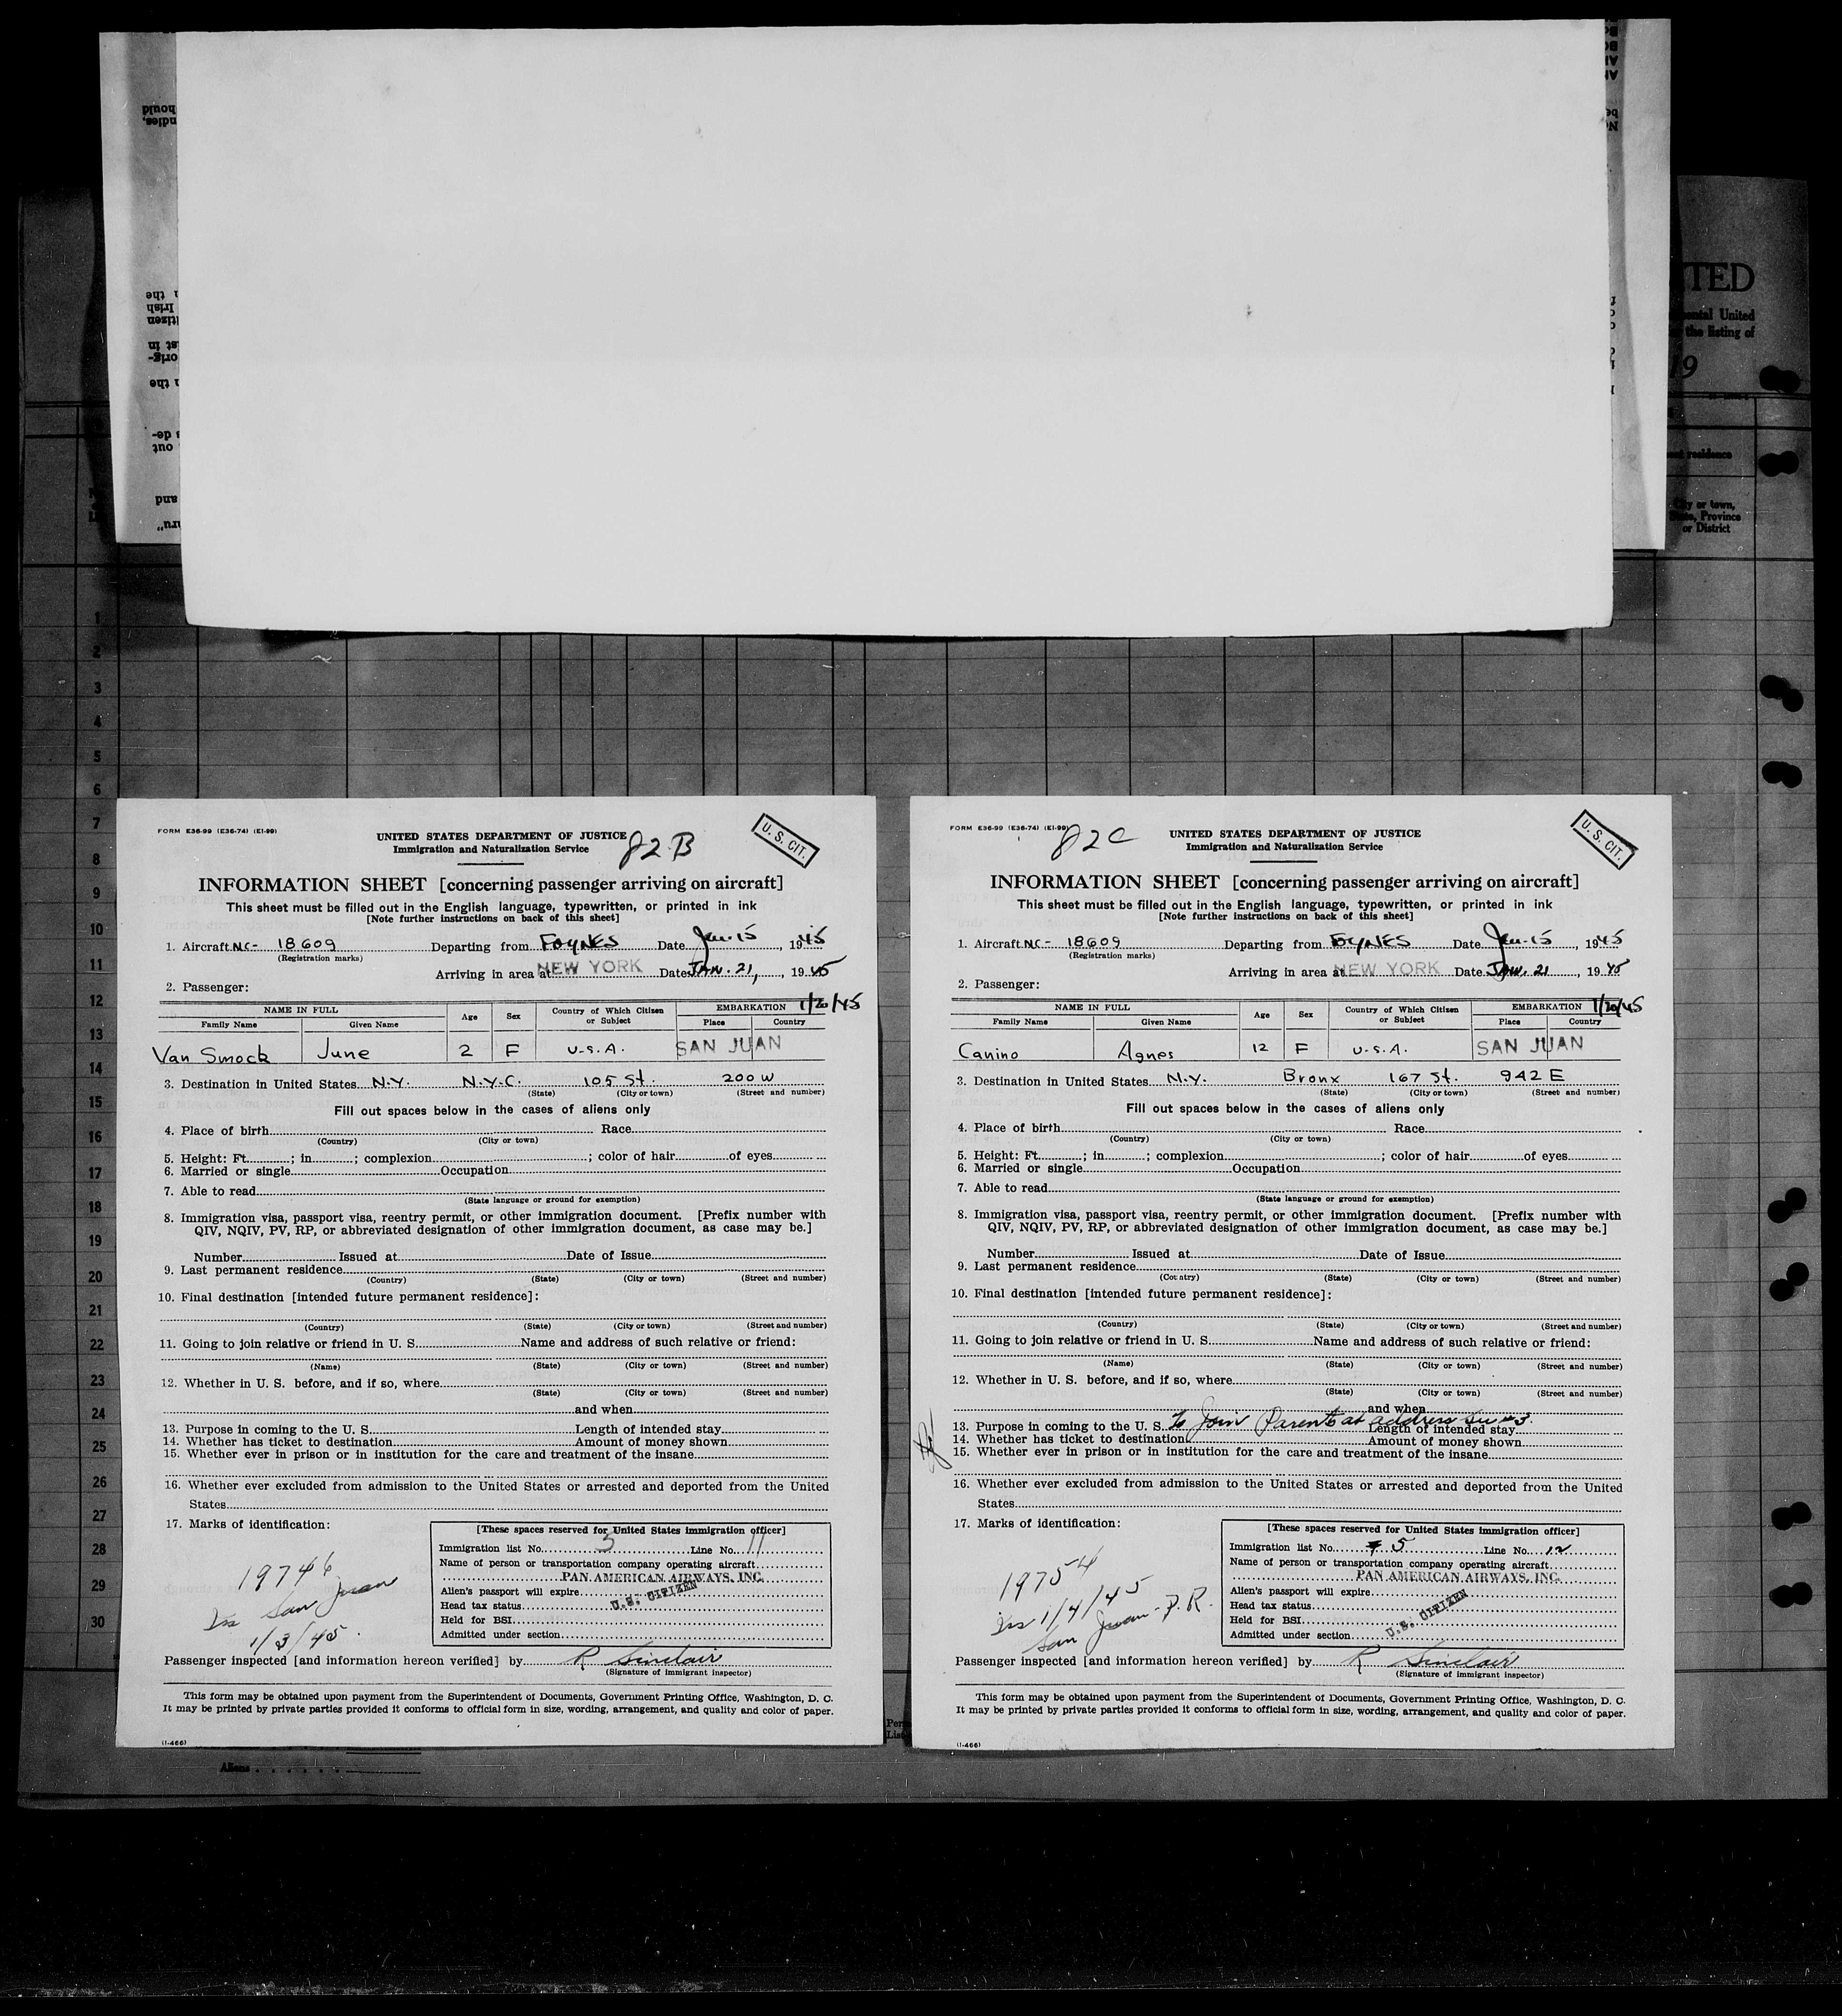 TED
ental United
the listing of
19
residence
City or town,
State, Province
or District
FORM E36-99 (E36-74) (E1-99)
UNITED STATES DEPARTMENT OF JUSTICE
Immigration and Naturalization Service
82B
U. S. CIT.
INFORMATION SHEET [concerning passenger arriving on aircraft]
This sheet must be filled out in the English language, typewritten, or printed in ink
[Note further instructions on back of this sheet]
1. Aircraft NC- 18609 Departing from FOYNES Date Jan. 15, 1945
(Registration marks)
Arriving in area at NEW YORK Date JAN. 21, 1945
2. Passenger:
NAME IN FULL Age Sex Country of Which Citizen or Subject EMBARKATION 1/20/45
Family Name Given Name Place Country
Van Smock June 2 F U.S.A. SAN JUAN
3. Destination in United States N.Y. N.Y.C. 105 St. 200 W
(State) (City or town) (Street and number)
Fill out spaces below in the cases of aliens only
4. Place of birth Race
(Country) (City or town)
5. Height: Ft. ; in ; complexion ; color of hair of eyes
6. Married or single Occupation
7. Able to read
(State language or ground for exemption)
8. Immigration visa, passport visa, reentry permit, or other immigration document. [Prefix number with
QIV, NQIV, PV, RP, or abbreviated designation of other immigration document, as case may be.]
Number Issued at Date of Issue
9. Last permanent residence
(Country) (State) (City or town) (Street and number)
10. Final destination [intended future permanent residence]:
(Country) (State) (City or town) (Street and number)
11. Going to join relative or friend in U. S. Name and address of such relative or friend:
(Name) (State) (City or town) (Street and number)
12. Whether in U. S. before, and if so, where
(State) (City or town) (Street and number)
and when
13. Purpose in coming to the U. S. Length of intended stay
14. Whether has ticket to destination Amount of money shown
15. Whether ever in prison or in institution for the care and treatment of the insane
16. Whether ever excluded from admission to the United States or arrested and deported from the United
States
17. Marks of identification:
19746
Iss San Juan
1/3/45.
[These spaces reserved for United States immigration officer]
Immigration list No. 5 Line No. 11
Name of person or transportation company operating aircraft
PAN AMERICAN AIRWAYS, INC.
Alien's passport will expire
U.S. CITIZEN
Head tax status
Held for BSI
Admitted under section
Passenger inspected [and information hereon verified] by R Sinclair
(Signature of immigrant inspector)
This form may be obtained upon payment from the Superintendent of Documents, Government Printing Office, Washington, D. C.
It may be printed by private parties provided it conforms to official form in size, wording, arrangement, and quality and color of paper.
(I-466)
FORM E36-99 (E36-74) (E1-99)
82C
UNITED STATES DEPARTMENT OF JUSTICE
Immigration and Naturalization Service
U. S. CIT.
INFORMATION SHEET [concerning passenger arriving on aircraft]
This sheet must be filled out in the English language, typewritten, or printed in ink
[Note further instructions on back of this sheet]
1. Aircraft NC- 18609 Departing from FOYNES Date Jan. 15, 1945
(Registration marks)
Arriving in area at NEW YORK Date JAN. 21, 1945
2. Passenger:
NAME IN FULL Age Sex Country of Which Citizen or Subject EMBARKATION 1/20/45
Family Name Given Name Place Country
Canino Agnes 12 F U.S.A. SAN JUAN
3. Destination in United States N.Y. Bronx 167 St. 942 E
(State) (City or town) (Street and number)
Fill out spaces below in the cases of aliens only
4. Place of birth Race
(Country) (City or town)
5. Height: Ft. ; in ; complexion ; color of hair of eyes
6. Married or single Occupation
7. Able to read
(State language or ground for exemption)
8. Immigration visa, passport visa, reentry permit, or other immigration document. [Prefix number with
QIV, NQIV, PV, RP, or abbreviated designation of other immigration document, as case may be.]
Number Issued at Date of Issue
9. Last permanent residence
(Country) (State) (City or town) (Street and number)
10. Final destination [intended future permanent residence]:
(Country) (State) (City or town) (Street and number)
11. Going to join relative or friend in U. S. Name and address of such relative or friend:
(Name) (State) (City or town) (Street and number)
12. Whether in U. S. before, and if so, where
(State) (City or town) (Street and number)
and when
13. Purpose in coming to the U. S. To Join Parents at address in #3. Length of intended stay
14. Whether has ticket to destination Amount of money shown
15. Whether ever in prison or in institution for the care and treatment of the insane
16. Whether ever excluded from admission to the United States or arrested and deported from the United
States
17. Marks of identification:
19754
Iss 1/4/45
San Juan - P.R.
[These spaces reserved for United States immigration officer]
Immigration list No. 5 Line No. 12
Name of person or transportation company operating aircraft
PAN AMERICAN AIRWAYS, INC.
Alien's passport will expire
Head tax status
Held for BSI
U.S. CITIZEN
Admitted under section
Passenger inspected [and information hereon verified] by R Sinclair
(Signature of immigrant inspector)
This form may be obtained upon payment from the Superintendent of Documents, Government Printing Office, Washington, D. C.
It may be printed by private parties provided it conforms to official form in size, wording, arrangement, and quality and color of paper.
(I-466)
1
2
3
4
5
6
7
8
9
10
11
12
13
14
15
16
17
18
19
20
21
22
23
24
25
26
27
28
29
30
Aliens